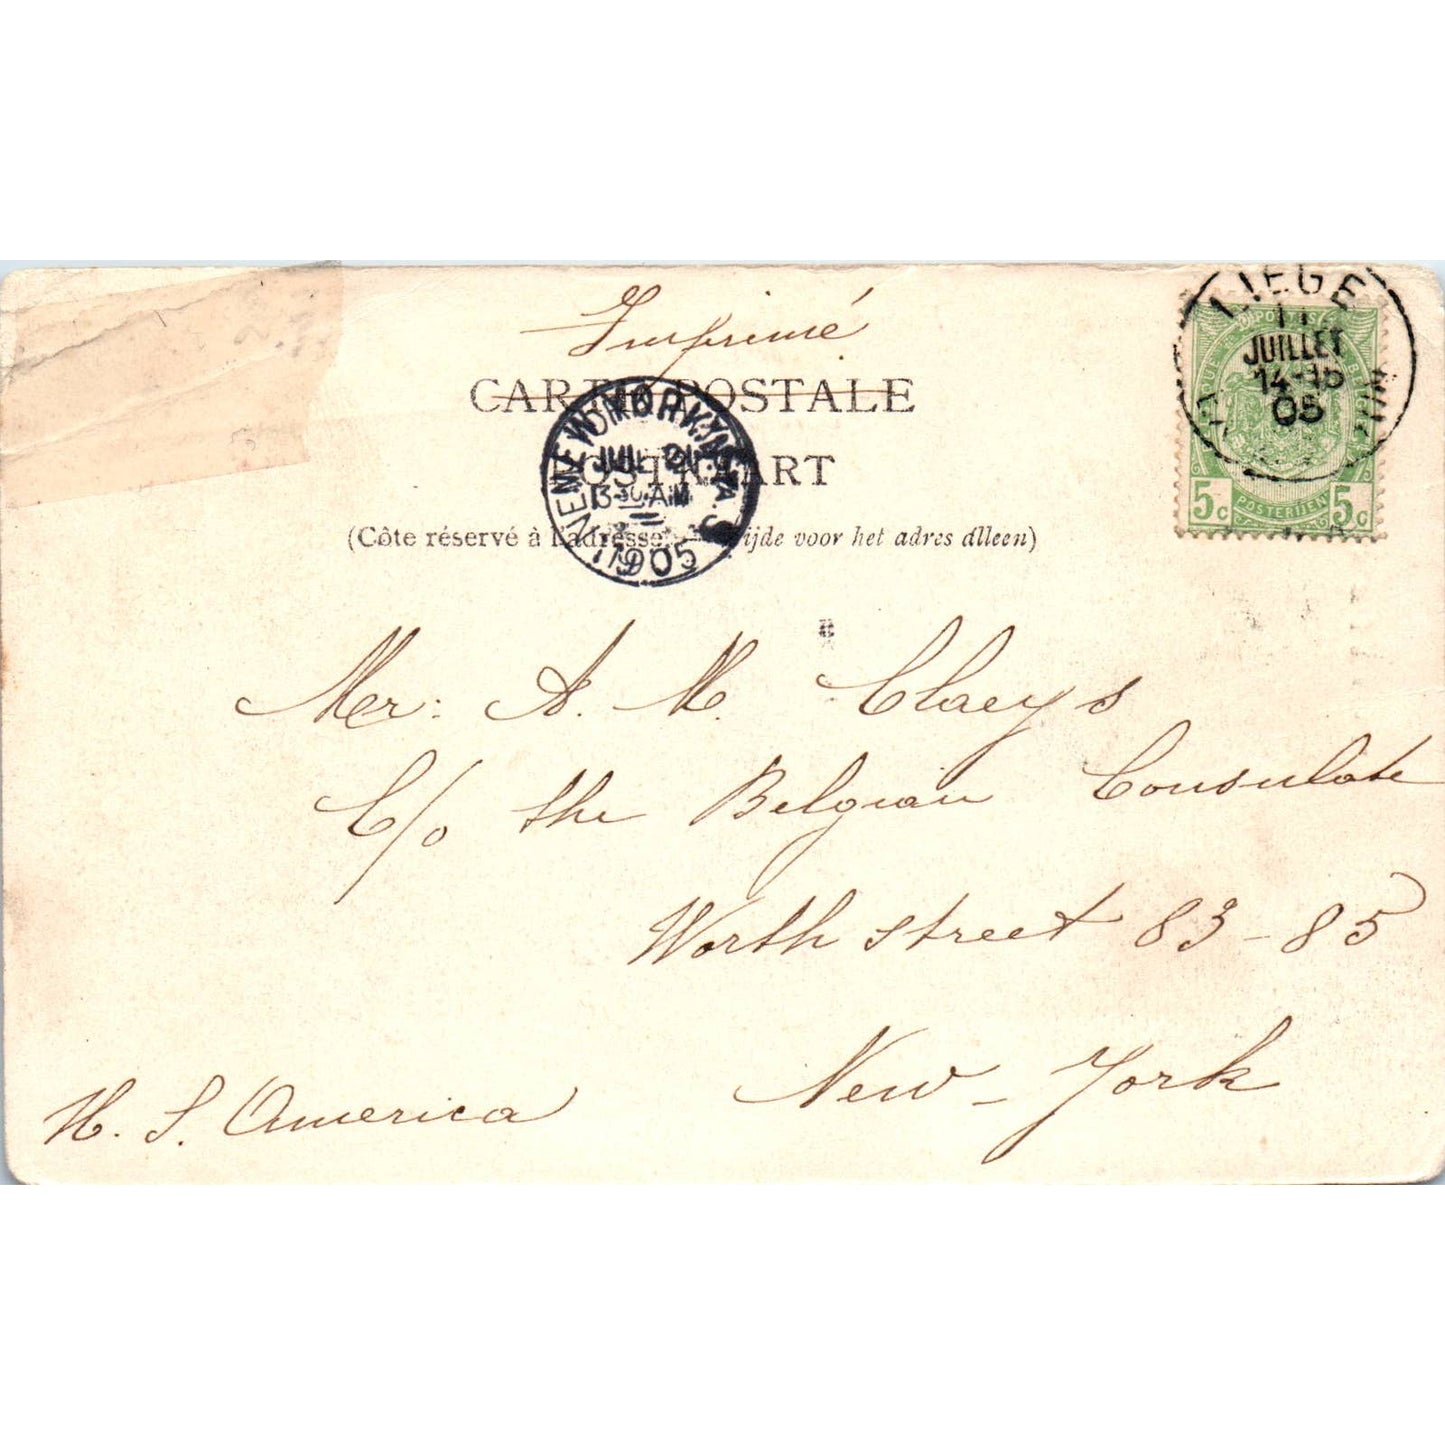 Imprimé
CARTE POSTALE
POSTKAART
(Côte réservé à l'adresse. Zijde voor het adres alleen)
NEW YORK, N.Y.
JUL 21
3-30 AM
1905
LIEGE
11
JUILLET
14-15
05
5c POSTERIJEN 5c
Mer: A. M. Claeys
C/o the Belgian Consulate
Worth street 83-85
New-York
N. S. America